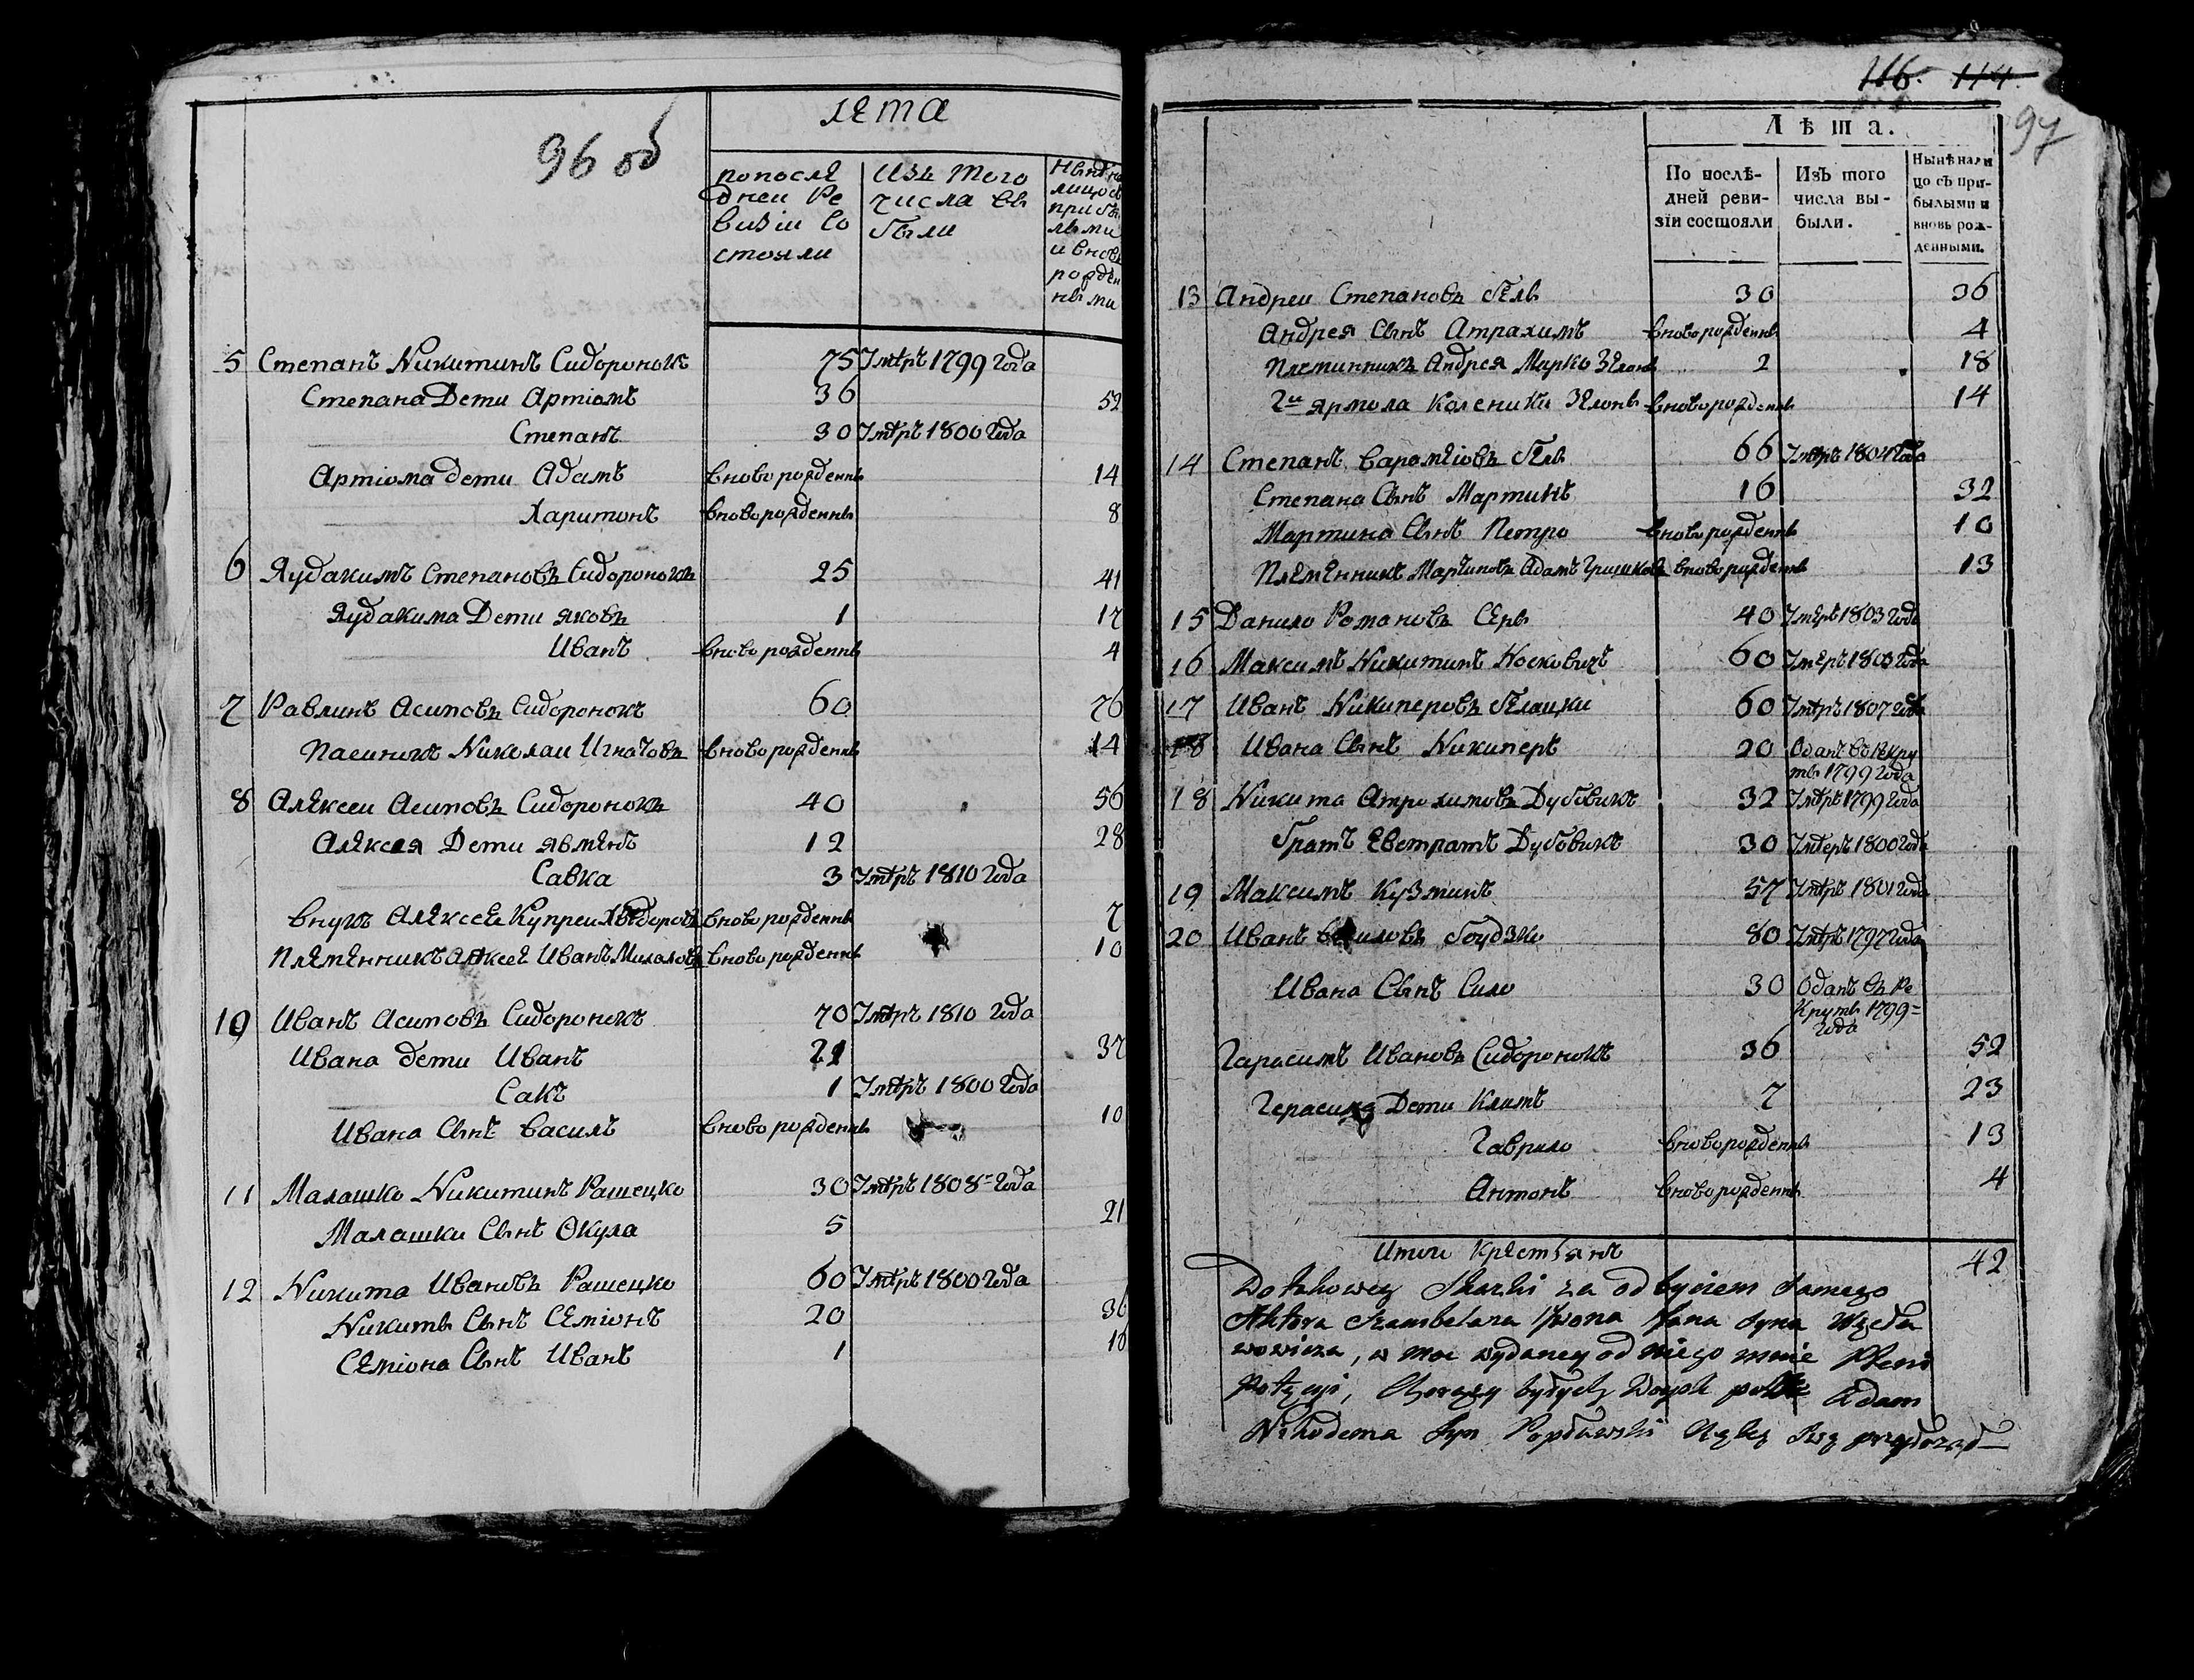 96 об
лета
по после
дней Ре
визіи со
стояли
изъ того
числа вы
были
ныне на
лицо съ
прибы
лыми
и вновь
рожден
ными
5 Степанъ Никитинъ Сидоронокъ 75 Умеръ 1799 года
Степана Дети Артіомъ 36 52
Степанъ 30 Умеръ 1800 года
Артіома дети Адамъ вново рожденны 14
Харитонъ вново рожденны 8
6 Яудакимъ Степановъ Сидоронокъ 25 41
Яудакима Дети Яковъ 1 17
Иванъ вново рожденны 4
7 Равлинъ Асиповъ Сидоронокъ 60 76
Пасинокъ Николаи Игнатовъ вново рожденны 14
8 Алексеи Асиповъ Сидоронокъ 40 56
Алексея Дети Явменъ 12 28
Савка 3 Умеръ 1810 года
внукъ Алексее Купреи Хведоровъ вново рожденны 7
Племенникъ Алексее Иванъ вново рожденны 10
10 Иванъ Асиповъ Сидоронокъ 70 Умеръ 1810 года
Ивана дети Иванъ 21 37
Сакъ 1 Умеръ 1800 года
Ивана Сынъ Василъ вново рожденны 10
11 Малашко Никитинъ Рашецко 30 Умеръ 1808 года
Малашки Сынъ Окула 5 21
12 Никита Ивановъ Рашецко 60 Умеръ 1800 года
Никиты Сынъ Семіонъ 20 36
Семіона Сынъ Иванъ 1
116. 114.
97
Лѣта.
По послѣ-
дней реви-
зіи состояли
Изъ того
числа вы-
были.
Нынѣ нали
цо съ при-
былыми и
вновь рож-
денными.
13 Андреи Степановъ 30 36
Андрея Сынъ Атрахимъ вново рожденны 4
Племинникъ Андрея Марко 2 18
2й Ярмола вново рожденны 14
14 Степанъ 66 Умеръ 1804 года
Степана Сынъ Мартинъ 16 32
Мартина Сынъ Петро вново рожденны 10
Племенникъ Мартиновъ Адамъ Гришковъ вново рожденны 13
15 Данило Романовъ 40 Умеръ 1803 года
16 Максимъ Никитинъ Носковичъ 60 Умеръ года
17 Иванъ Никиперовъ 60 Умеръ 1807 года
18 Ивана Сынъ Никиперъ 20 Оданъ въ Рекру
ты 1799 года
18 Никита Атрохимовъ Дубовикъ 32 Умеръ 1799 года
Братъ Евстратъ Дубовикъ 30 Умеръ 1800 года
19 Максимъ Кузминъ 57 Умеръ 1801 года
20 Иванъ 80 Умеръ 1797 года
Ивана Сынъ Сило 30 Оданъ въ Ре
круты 1799
года
Герасимъ Ивановъ Сидоронокъ 36 52
Герасима Дети Климъ 7 23
Гаврило вново рожденны 13
Антонъ вново рожденны 4
Итого Крестьянъ 42
Do takowey Skazki za odbyciem samego
Aktora Szambelana Jana syna
w moc wydaney od niego mnie
byłych Woysk Adam
Nikodema syn Popławski